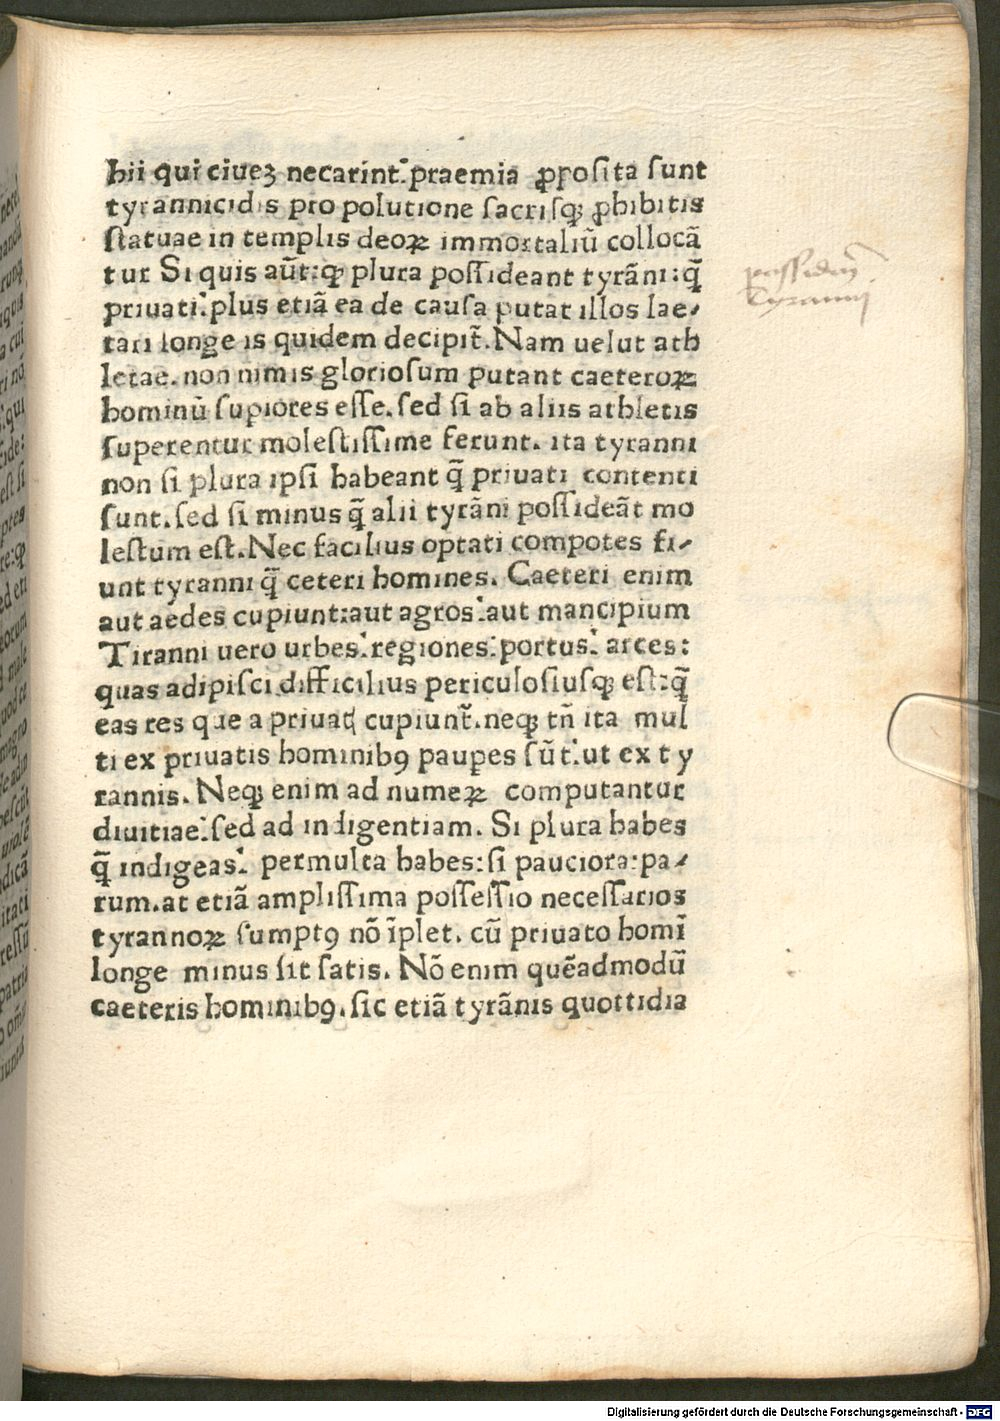 hii qui ciueꝫ necarint: praemia ꝓposita sunt
tyrannicidis pro polutione sacrisqꝫ ꝓhibitis
statuae in templis deoꝝ immortaliū collocā
tur Si quis aūt: qꝫ plura possideant tyrāni: q̄
priuati: plus etiā ea de causa putat illos lae-
tari longe is quidem decipit̄. Nam uelut ath
letae. non nimis gloriosum putant caeteroꝝ
hominū supiores esse. sed si ab aliis athletis
superentur molestissime ferunt. ita tyranni
non si plura ipsi habeant q̄ priuati contenti
sunt. sed si minus q̄ alii tyrāni possideāt mo
lestum est. Nec facilius optati compotes fi-
unt tyranni q̄ ceteri homines. Caeteri enim
aut aedes cupiunt: aut agros: aut mancipium
Tiranni uero urbes: regiones: portus: arces:
quas adipisci difficilius periculosiusqꝫ est: q̄
eas res que a priuatꝭ cupiunt̄. neqꝫ tn̄ ita mul
ti ex priuatis hominibꝯ pauꝑes sūt: ut ex ty
rannis. Neqꝫ enim ad numeꝝ computantur
diuitiae: sed ad indigentiam. Si plura habes
q̄ indigeas: permulta habes: si pauciora: pa-
rum. at etiā amplissima possessio necessarios
tyrannoꝝ sumptꝯ nō īplet. cū priuato homī
longe minus sit satis. Nō enim quēadmodū
caeteris hominibꝯ. sic etiā tyrānis quottidia
Tyranni
Digitalisierung gefördert durch die Deutsche Forschungsgemeinschaft - DFG